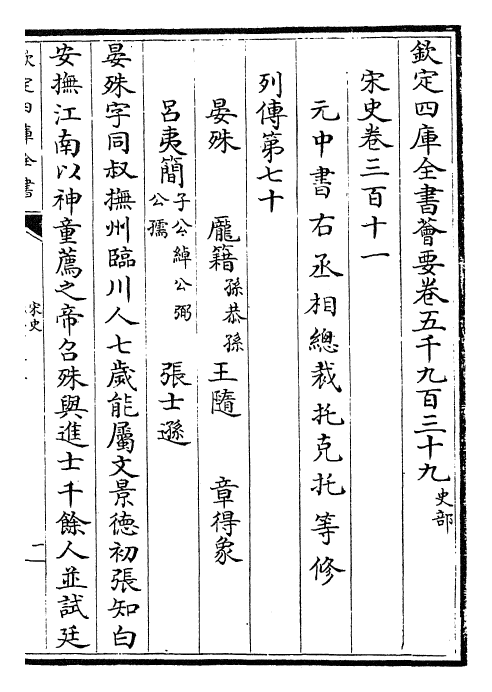 欽定四庫全書薈要卷五千九百三十九 史部
宋史卷三百十一
元中書右丞相總裁托克托等修
列傳第七十
晏殊 龐籍 孫恭孫 王隨 章得象
呂夷簡 子公綽 公弼 公孺 張士遜
晏殊字同叔撫州臨川人七歲能屬文景德初張知白
安撫江南以神童薦之帝召殊與進士千餘人並試廷
欽定四庫全書
宋史